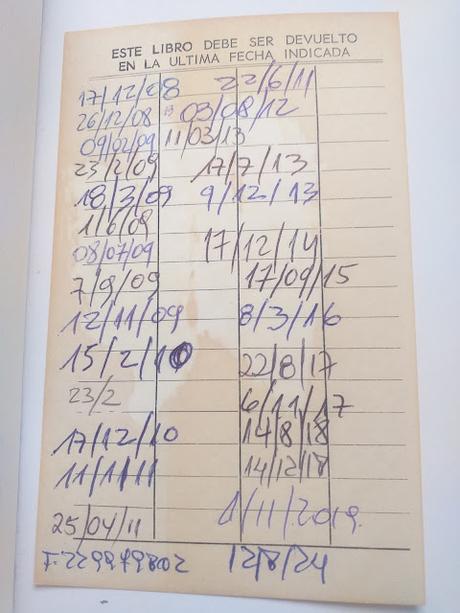 ESTE LIBRO DEBE SER DEVUELTO
EN LA ULTIMA FECHA INDICADA
17/12/08
26/12/08
09/02/09
23/2/09
18/3/09
1/6/09
08/07/09
7/9/09
12/11/09
15/2/10
23/2
17/12/10
11/1/11
25/04/11
22/6/11
03/08/12
11/03/13
17/7/13
9/12/13
17/12/14
17/09/15
8/3/16
22/8/17
6/11/17
14/8/18
14/12/18
1/11/2019
12/8/24